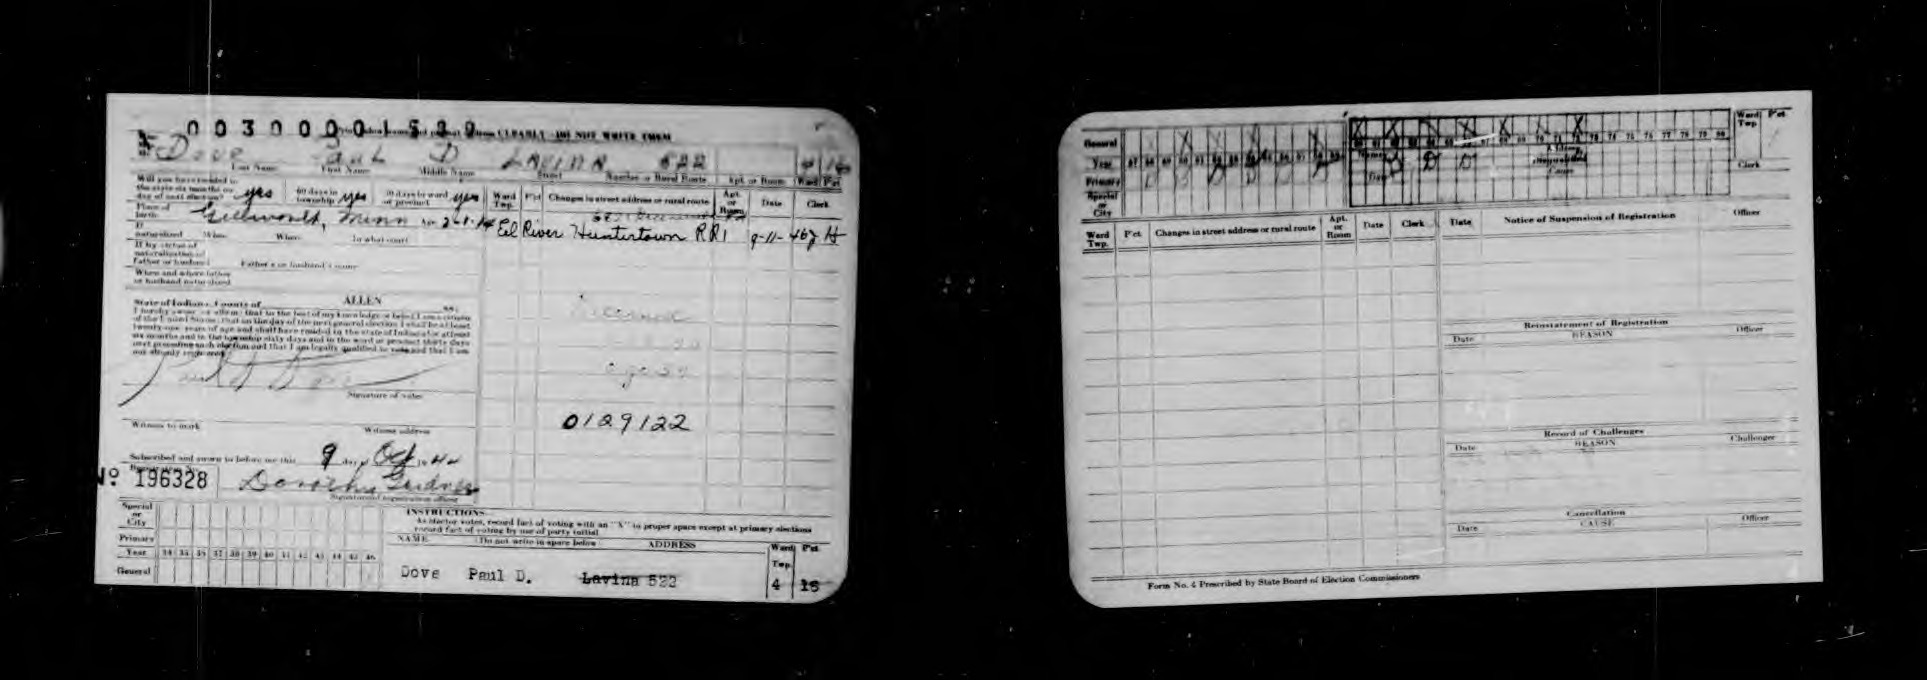 00300001539
CLEARLY DO NOT WRITE THEM
Dove Paul D LAVINA 522 4
Last Name First Name Middle Name Street Number or Rural Route Apt. or Room Ward Pct.
Will you have resided in the state six months on day of next election? yes 60 days in township yes 30 days by ward or precinct yes
Ward Twp. Pct. Changes in street address or rural route Apt. or Room Date Clerk
Place of birth Minn
El River Huntertown RR1 9-11-46
If naturalized When Where In what court
If by virtue of naturalization of Father or husband Father's or husband's name
When and where father or husband naturalized
State of Indiana, County of ALLEN ss:
I hereby swear or affirm that to the best of my knowledge or belief I am a citizen
of the United States; that on the day of the next general election I shall be at least
twenty-one years of age and shall have resided in the state of Indiana for at least
six months and in the township sixty days and in the ward or precinct thirty days
next preceding such election and that I am legally qualified to vote and that I am
not already registered.
Paul D Dove
Signature of voter
0129122
Witness to mark Witness address
Subscribed and sworn to before me this 9 day of Oct 1944
Registration No.
No 196328 Dorothy Gardner
Signature of registration officer
INSTRUCTIONS
As elector votes, record fact of voting with an "X" in proper space except at primary elections
record fact of voting by use of party initial
Special or City
Primary
Year 34 35 36 37 38 39 40 41 42 43 44 45 46
General
NAME (Do not write in space below) ADDRESS Ward Twp. Pct.
Dove Paul D. Lavina 522 4 15
General
Year
Primary
Special or City
Ward Twp. Pct.
Clerk
Ward Twp. Pct. Changes in street address or rural route Apt. or Room Date Clerk
Date Notice of Suspension of Registration Officer
Reinstatement of Registration
Date REASON Officer
Record of Challenges
Date REASON Challenger
Cancellation
Date CAUSE Officer
Form No. 4 Prescribed by State Board of Election Commissioners